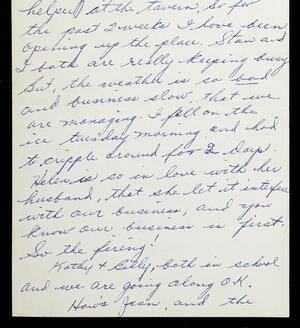 helper at the tavern, so for
the past 2 weeks I have been
opening up the place. Stan and
I both are really keeping busy
But, the weather is so bad
and business slow, that we
are managing. I fell on the
ice tuesday morning, and had
to cripple around for 2 days.
Helen is so in love with her
husband, that she let it interfere
with our business, and you
know our business is first.
So the firing!
Kathy & Billy, both in school
and we are going along O.K.
How's Jean, and the